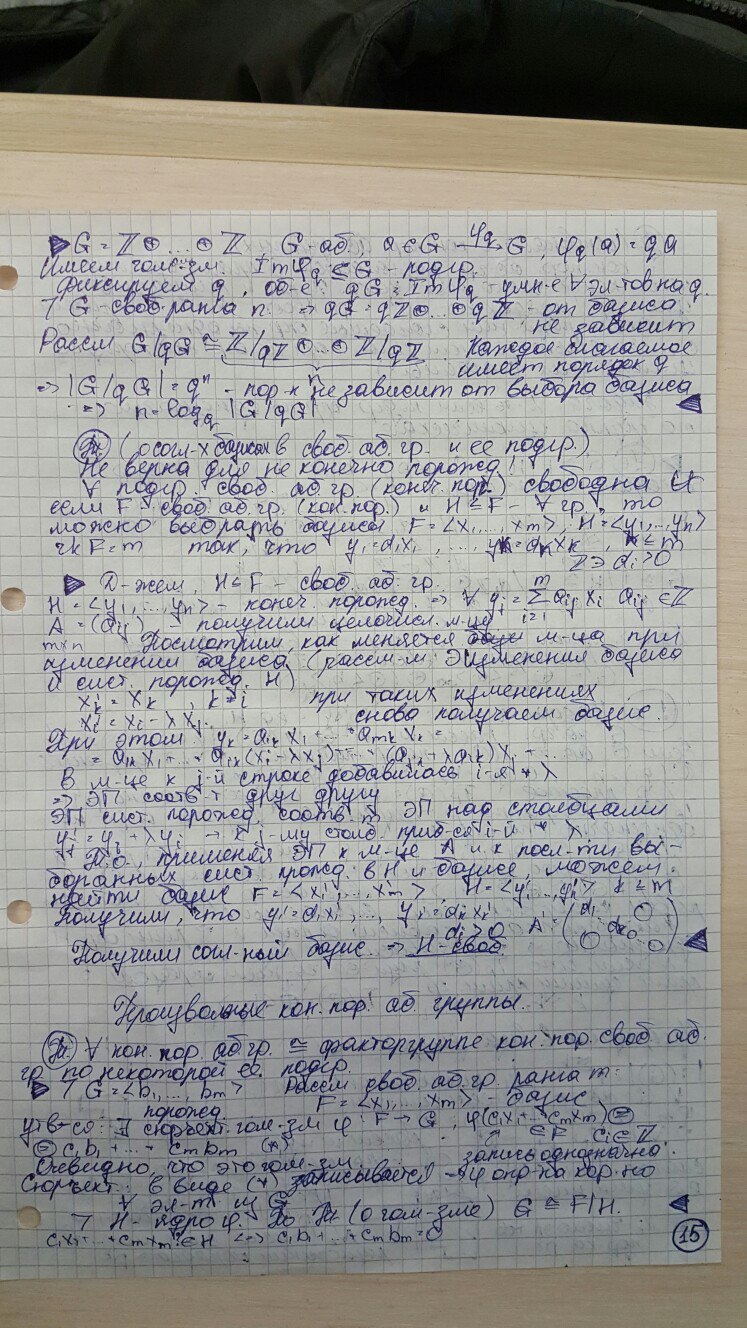 ▶ G = ℤ⊕...⊕ℤ G - аб., a ∈ G →^{φ_q} G, φ_q(a) = qa
Имеем гом-зм. Im φ_q ⊆ G - подгр.
Фиксируем q, об-е: qG = Im φ_q - умн-е ∀ эл-тов на q.
7 G - своб. ранга n. ⇒ qG = qℤ⊕...⊕qℤ - от базиса
не зависит
Рассм. G/qG ≅ ℤ/qℤ⊕...⊕ℤ/qℤ. Каждое слагаемое
n имеет порядок q
⇒ |G/qG| = qⁿ - пор-к не зависит от выбора базиса
⇒ n = log_q |G/qG| ◀
(о согл-х базисах в своб. аб. гр. и ее подгр.)
Не верна для не конечно порожд.!
∀ подгр. своб. аб. гр. (конеч. пор.) свободна и
если F - своб. аб. гр. (кон. пор.) и H ⊆ F - ∀ гр., то
можно выбрать базисы F = <x₁,...,x_m>, H = <y₁,...,y_n>
rk F = m так, что y₁ = d₁x₁, ..., y_k = d_k x_k, k ≤ m
ℤ ∋ d_i > 0
▶ Д-жем, H ⊆ F - своб. аб. гр.
H = <y₁,...,y_n> - конеч. порожд. ⇒ ∀ y_j = Σ_{i=1}^{m} a_{ij} x_i a_{ij} ∈ ℤ
A = (a_{ij}) - получили целочисл. м-цу
m×n Посмотрим, как меняется м-ца при
изменении базиса (рассм-м Э изменения базиса
и сист. порожд. H)
x_k' = x_k, k ≠ i при таких изменениях
x_i' = x_i - λx_j снова получаем базис.
При этом y_k = a_{1k}x₁ + ... + a_{mk}x_k =
= a_{1k}x₁ + ... + a_{ik}(x_i - λx_j) + ... + (a_{jk} + λa_{ik})x_j + ...
В м-це к j-й строке добавилась i-я * λ
⇒ ЭП соотв-т друг другу
ЭП сист. порожд. соотв. ЭП над столбцами
y_j' = y_j + λy_i → к j-му столб. приб-ся i-й * λ.
Т.О., применяя ЭП к м-це A и к посл-ти вы-
бранных сист. порожд. в H и базисе, можем
найти базис F = <x₁',...,x_m'> H = <y₁',...,y_k'> k ≤ m
Получили, что y₁' = d₁x₁', ..., y_k' = d_k x_k'
d_i > 0 A = (d₁ 0 d_k 0 0 0)
Получили согл-ный базис. ⇒ H - своб. ◀
Произвольные кон. пор. аб. группы.
∀ кон. пор. аб. гр. ≅ факторгруппе кон. пор. своб. аб.
гр. по некоторой ее подгр.
▶ 7 G = <b₁,...,b_m> Рассм. своб. аб. гр. ранга m:
порожд. F = <x₁,...,x_m> - базис
утв-ся: ∃ сюръект. гом-зм φ: F → G, φ(c₁x₁ + ... + c_m x_m) ⊜
∈ F c_i ∈ ℤ
⊜ c₁b₁ + ... + c_m b_m (*) запись однозначна.
Очевидно, что это гом-зм.
Сюръект.: в виде (*) записывается → φ опр-на кор-но
∀ эл-т из G
7 H - ядро φ. По (о гом-зме) G ≅ F/H. ◀
c₁x₁ + ... + c_m x_m ∈ H ↔ c₁b₁ + ... + c_m b_m = 0
15